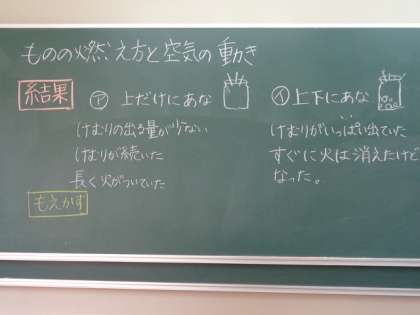 ものの燃え方と空気の動き
結果
㋐ 上だけにあな
けむりの出る量が少ない
けむりが続いた
長く火がついていた
もえかす
㋑ 上下にあな
けむりがいっぱい出ていた
すぐに火は消えたけど
なった。